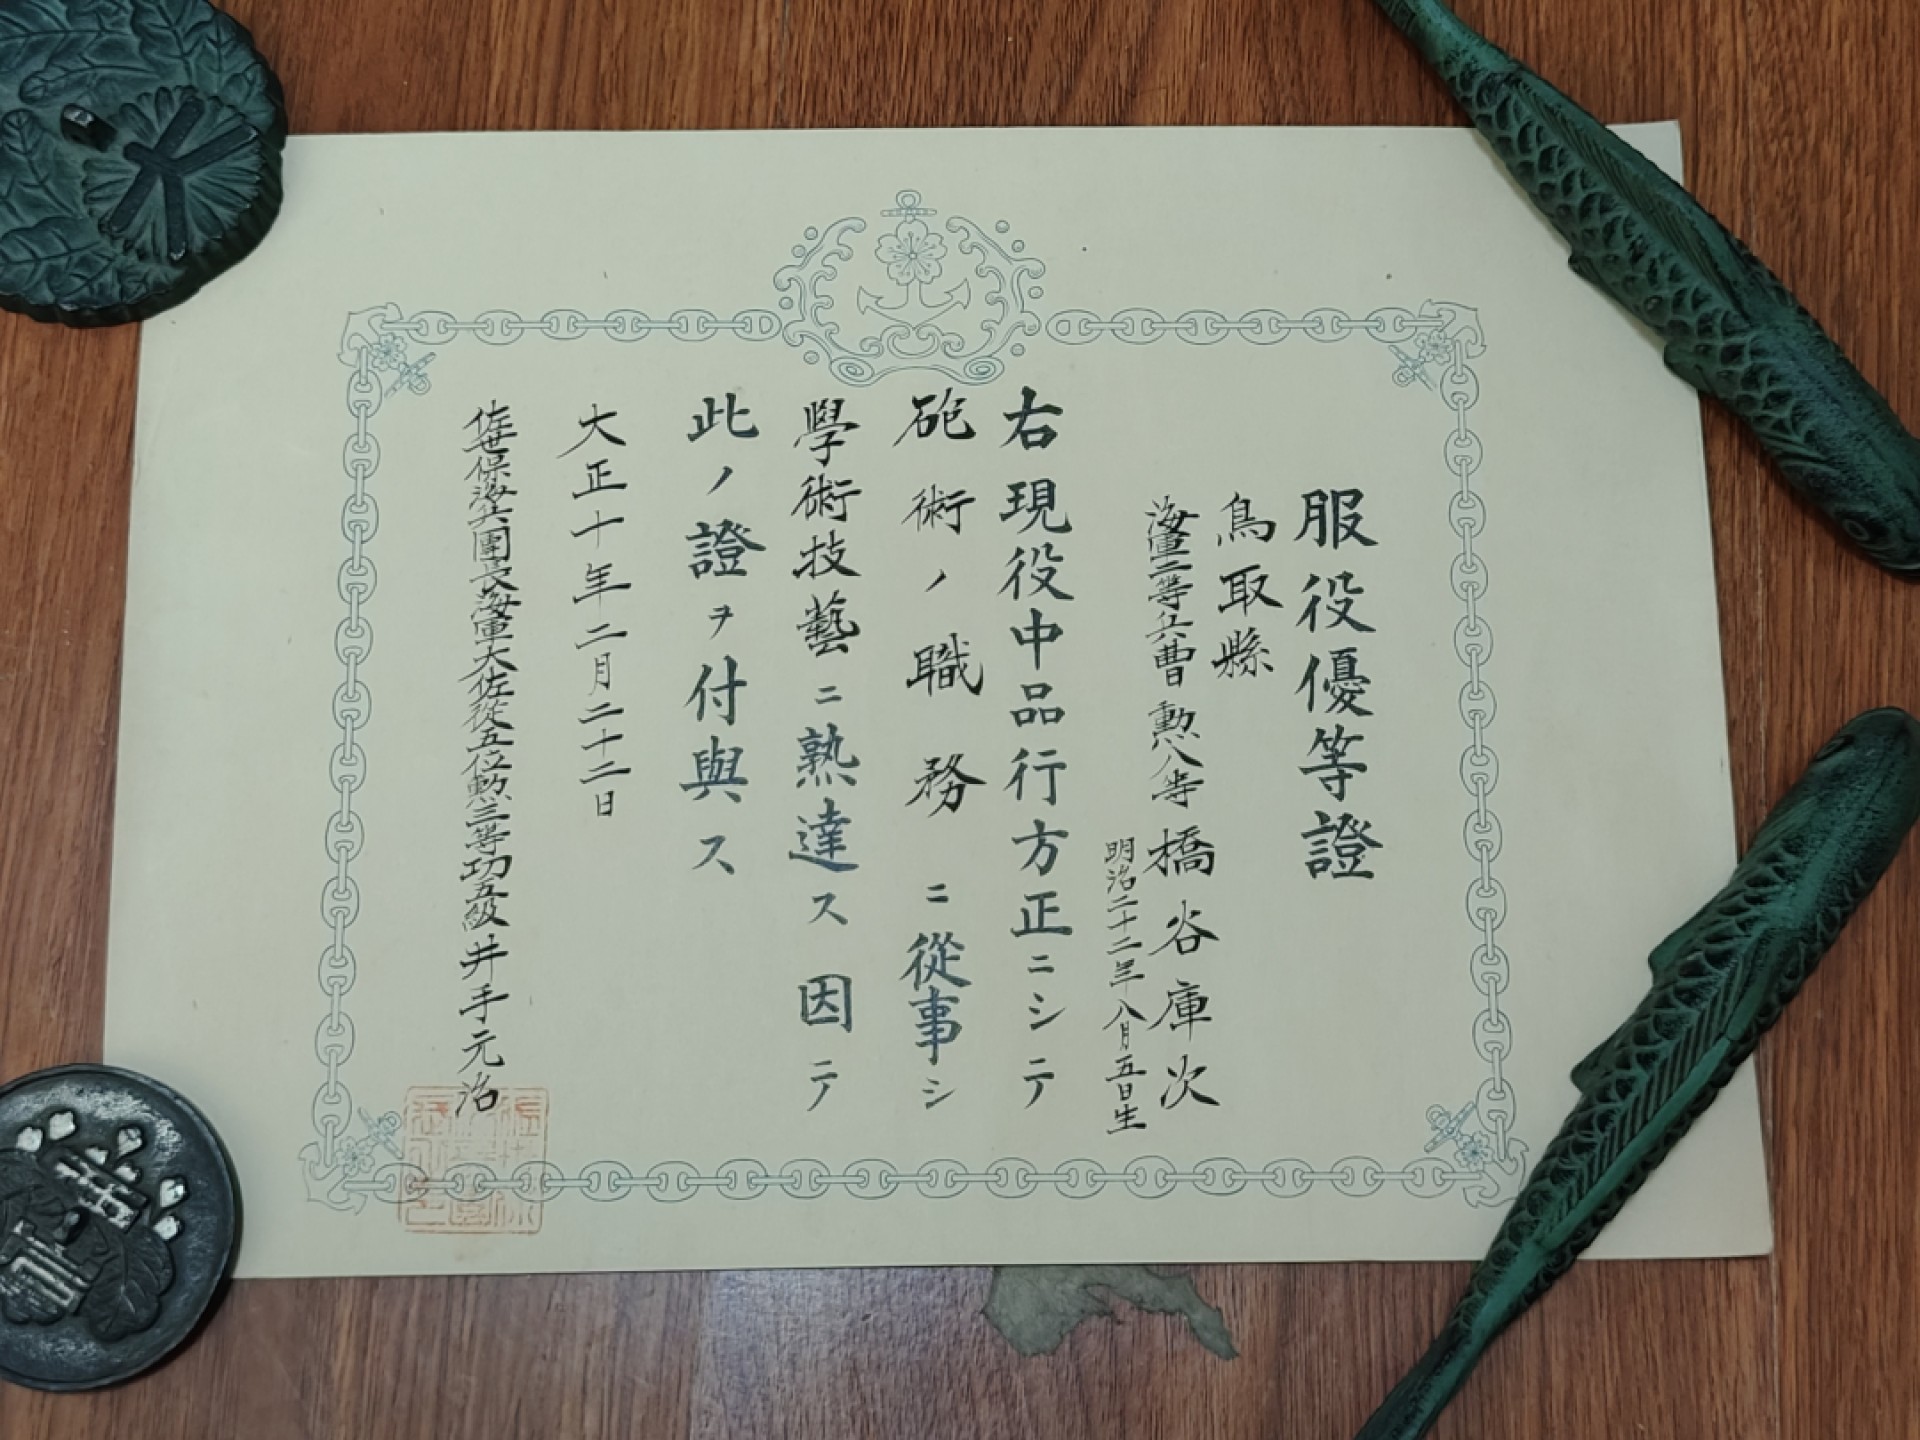 服役優等證
鳥取縣
海軍二等兵曹勲八等橋谷庫次
明治二十二年八月五日生
右現役中品行方正ニシテ
砲術ノ職務ニ從事シ
學術技藝ニ熟達ス因テ
此ノ證ヲ付與ス
大正十年二月二十二日
佐世保海兵團長海軍大佐從五位勲三等功五級井手元治